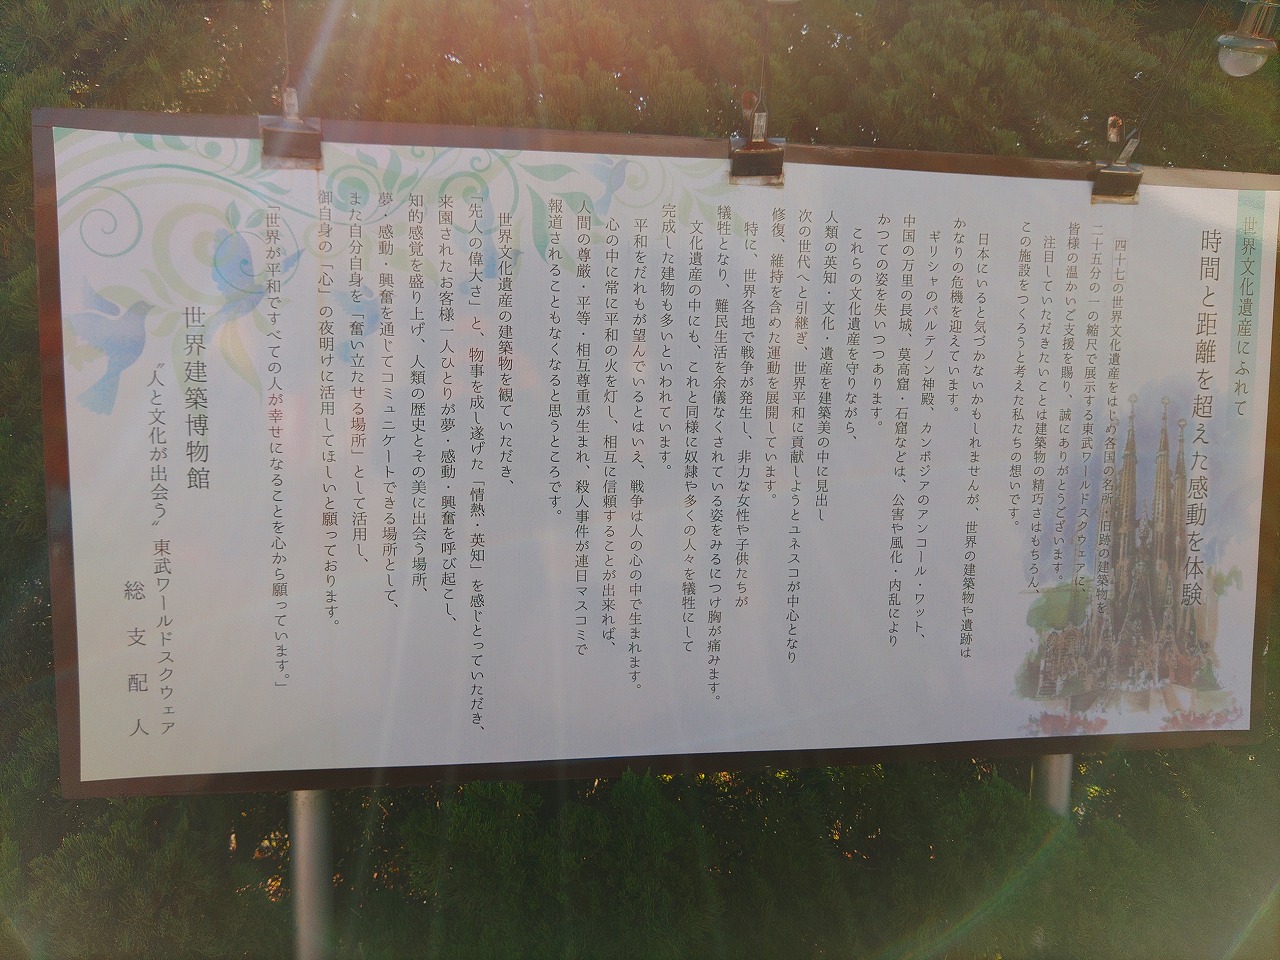 世界文化遺産にふれて
時間と距離を超えた感動を体験
四十七の世界文化遺産をはじめ各国の名所・旧跡の建築物を
二十五分の一の縮尺で展示する東武ワールドスクウェアに、
皆様の温かいご支援を賜り、誠にありがとうございます。
注目していただきたいことは建築物の精巧さはもちろん、
この施設をつくろうと考えた私たちの想いです。
日本にいると気づかないかもしれませんが、世界の建築物や遺跡は
かなりの危機を迎えています。
ギリシャのパルテノン神殿、カンボジアのアンコール・ワット、
中国の万里の長城、莫高窟・石窟などは、公害や風化・内乱により
かつての姿を失いつつあります。
これらの文化遺産を守りながら、
人類の英知・文化・遺産を建築美の中に見出し
次の世代へと引継ぎ、世界平和に貢献しようとユネスコが中心となり
修復、維持を含めた運動を展開しています。
特に、世界各地で戦争が発生し、非力な女性や子供たちが
犠牲となり、難民生活を余儀なくされている姿をみるにつけ胸が痛みます。
文化遺産の中にも、これと同様に奴隷や多くの人々を犠牲にして
完成した建物も多いといわれています。
平和をだれもが望んでいるとはいえ、戦争は人の心の中で生まれます。
心の中に常に平和の火を灯し、相互に信頼することが出来れば、
人間の尊厳・平等・相互尊重が生まれ、殺人事件が連日マスコミで
報道されることもなくなると思うところです。
世界文化遺産の建築物を観ていただき、
「先人の偉大さ」と、物事を成し遂げた「情熱・英知」を感じとっていただき、
来園されたお客様一人ひとりが夢・感動・興奮を呼び起こし、
知的感覚を盛り上げ、人類の歴史とその美に出会う場所、
夢・感動・興奮を通じてコミュニケートできる場所として、
また自分自身を「奮い立たせる場所」として活用し、
御自身の「心」の夜明けに活用してほしいと願っております。
「世界が平和ですべての人が幸せになることを心から願っています。」
世界建築博物館
〝人と文化が出会う〟 東武ワールドスクウェア
総支配人